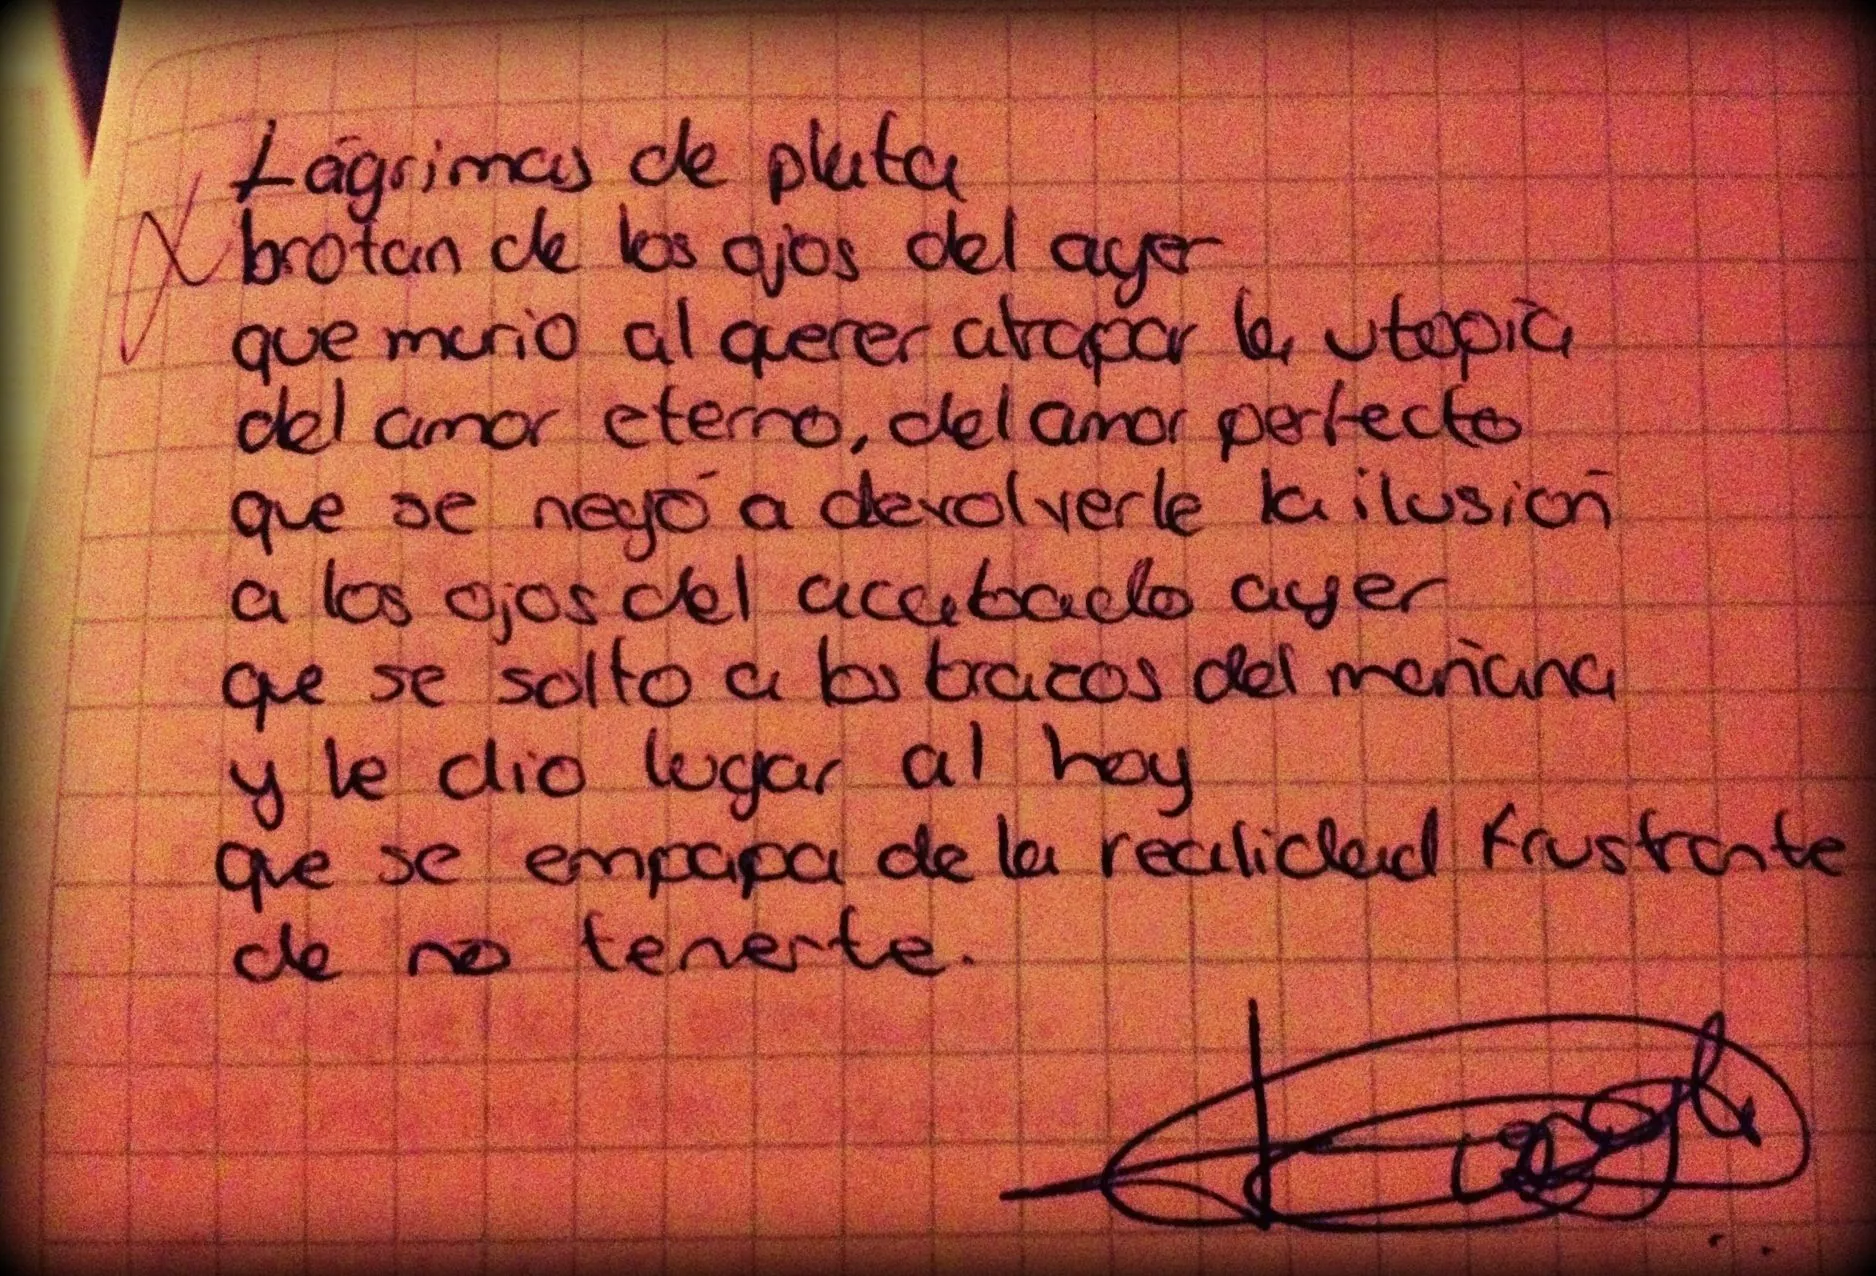 Lágrimas de plata
brotan de los ojos del ayer
que murio al querer atrapar la utopía
del amor eterno, del amor perfecto
que se negó a devolverle la ilusión
a los ojos del acabado ayer
que se solto a los brazos del mañana
y le dio lugar al hoy
que se empapa de la realidad frustrante
de no tenerte.